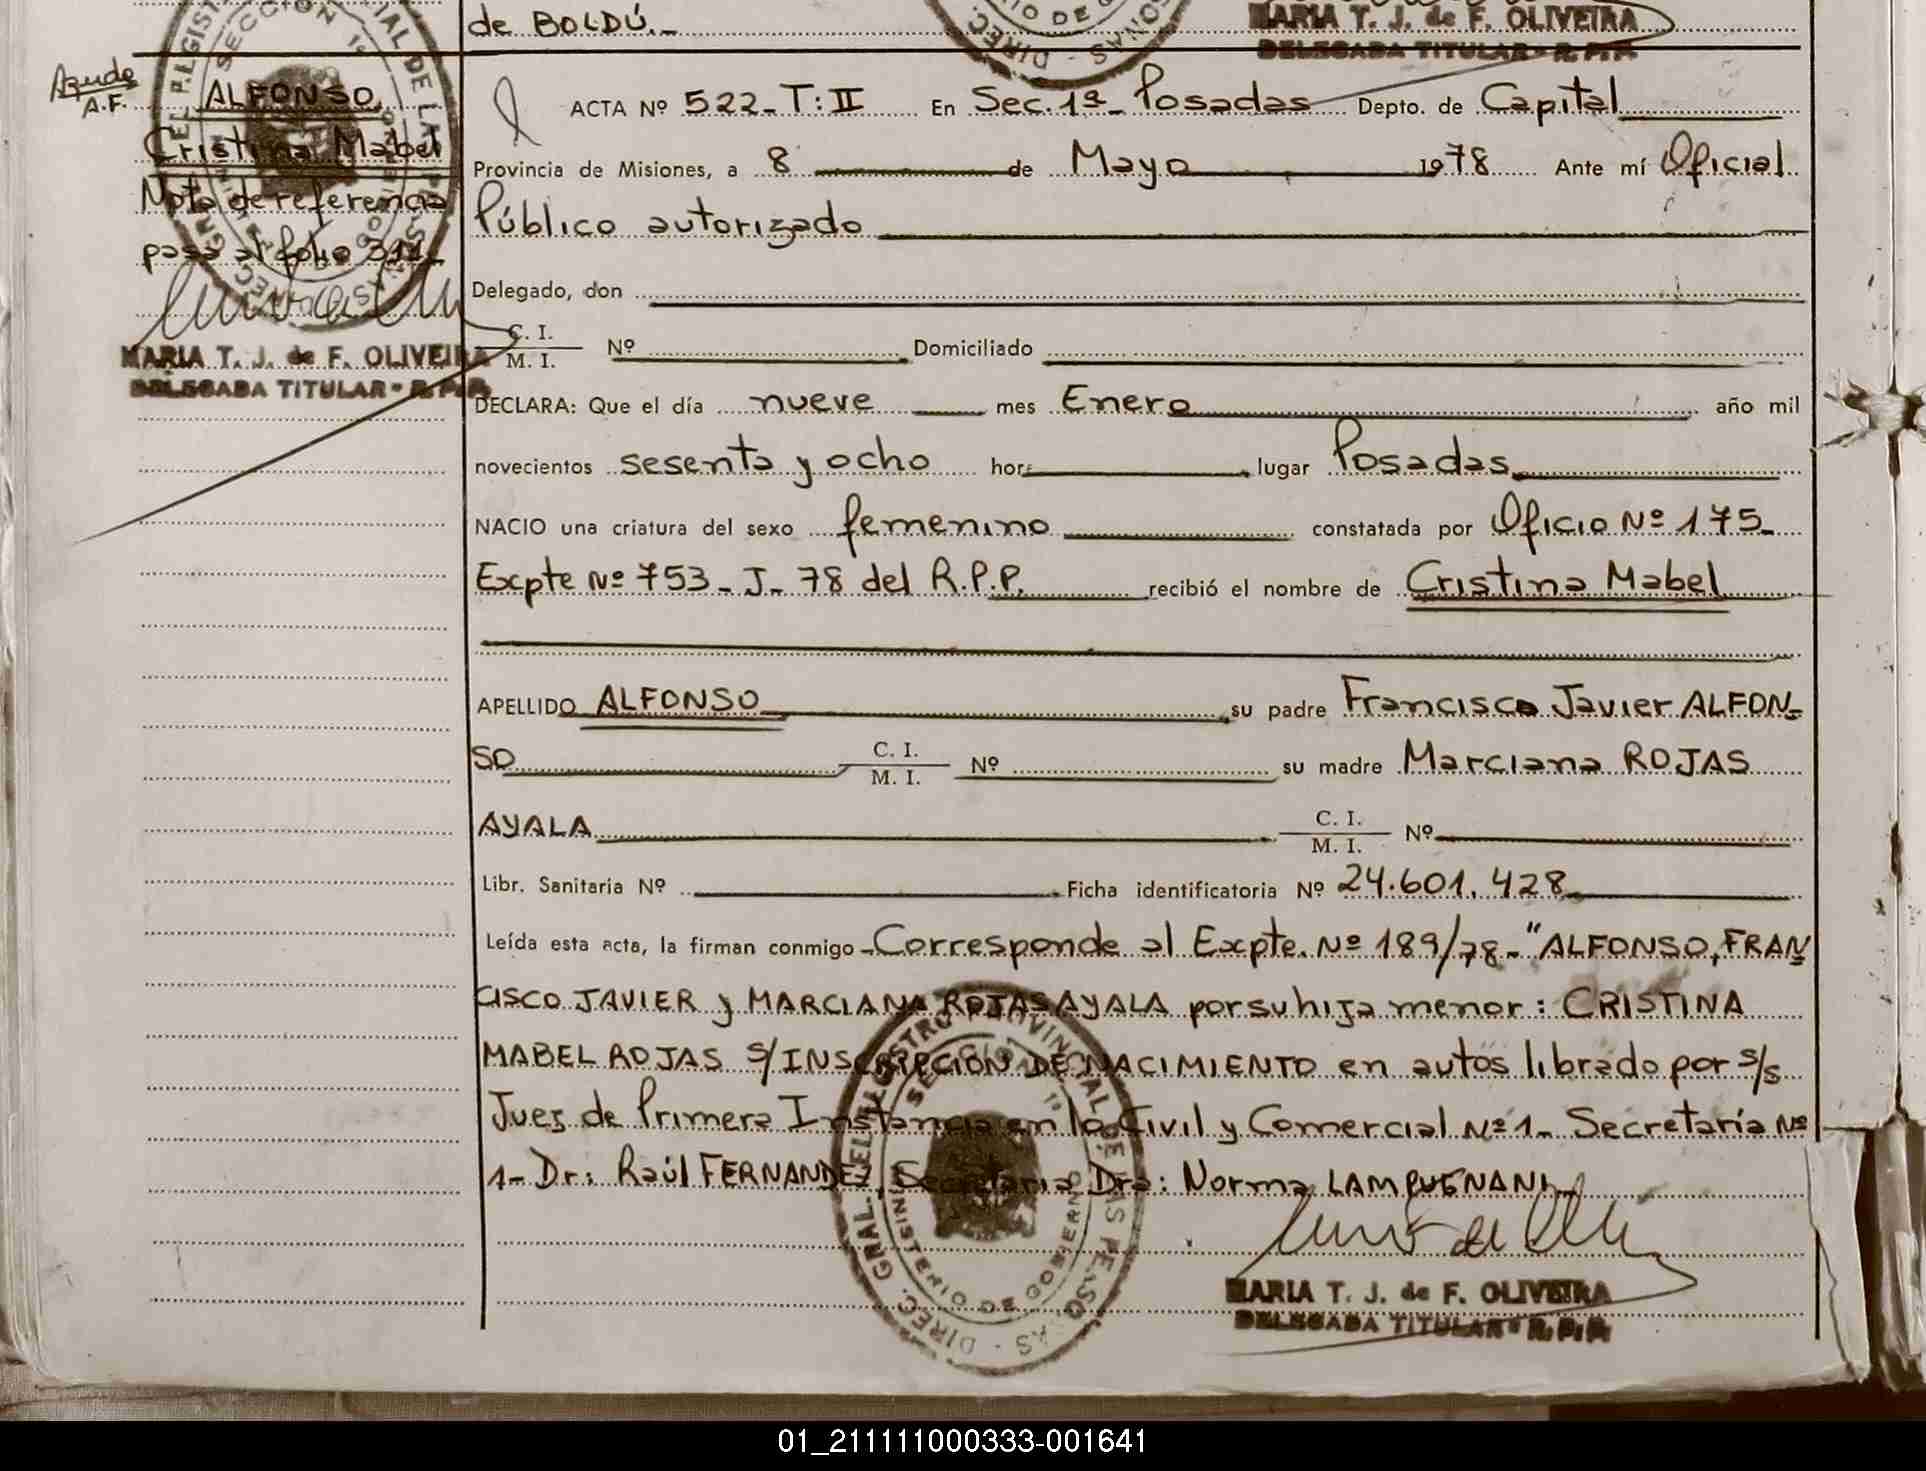 de BOLDÚ._
MARIA T. J. de F. OLIVEIRA
DELEGADA TITULAR - R. P. P.
A.F.
ALFONSO
Cristina Mabel
Nota de referencia
pasa al folio 311_
MARIA T. J. de F. OLIVEIRA
DELEGADA TITULAR - R. P. P.
ACTA Nº 522_T:II En Sec. 1ª_ Posadas Depto. de Capital
Provincia de Misiones, a 8 de Mayo 1978 Ante mí Oficial
Público autorizado
Delegado, don
C. I. / M. I. Nº Domiciliado
DECLARA: Que el día nueve mes Enero año mil
novecientos sesenta y ocho hora lugar Posadas
NACIO una criatura del sexo femenino constatada por Oficio Nº 175_
Expte Nº 753_J_78 del R.P.P. recibió el nombre de Cristina Mabel
APELLIDO ALFONSO su padre Francisco Javier ALFON_
SO C. I. / M. I. Nº su madre Marciana ROJAS
AYALA C. I. / M. I. Nº
Libr. Sanitaria Nº Ficha identificatoria Nº 24.601.428
Leída esta acta, la firman conmigo _Corresponde al Expte. Nº 189/78_ "ALFONSO, FRAN
CISCO JAVIER y MARCIANA ROJAS AYALA por su hija menor: CRISTINA
MABEL ROJAS S/INSCRIPCION DE NACIMIENTO en autos librado por s/s
Juez de Primera Instancia en lo Civil y Comercial Nº 1_ Secretaría Nº
1_ Dr: Raúl FERNANDEZ, Secretaria Dra: Norma LAMPUGNANI_
DIREC. GRAL. DEL REGISTRO PROVINCIAL DE LAS PERSONAS
SECCION 1ª
MINISTERIO DE GOBIERNO
MARIA T. J. de F. OLIVEIRA
DELEGADA TITULAR - R. P. P.
01_211111000333-001641